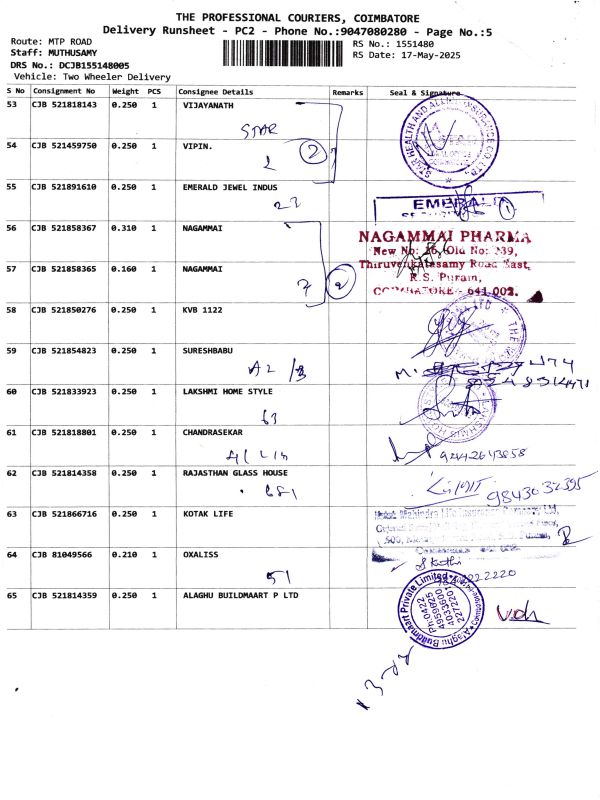 THE PROFESSIONAL COURIERS, COIMBATORE
Delivery Runsheet - PC2 - Phone No.:9047080280 - Page No.:5
Route: MTP ROAD
RS No.: 1551480
Staff: MUTHUSAMY
RS Date: 17-May-2025
DRS No.: DCJB155148005
Vehicle: Two Wheeler Delivery
S No Consignment No Weight PCS Consignee Details Remarks Seal & Signature
53 CJB 521818143 0.250 1 VIJAYANATH
STAR
54 CJB 521459750 0.250 1 VIPIN.
2
55 CJB 521891610 0.250 1 EMERALD JEWEL INDUS
EMERALD
1
56 CJB 521858367 0.310 1 NAGAMMAI
NAGAMMAI PHARMA
New No: 26, Old No: 239,
57 CJB 521858365 0.160 1 NAGAMMAI
Thiruvenkatasamy Road East,
R.S. Puram,
COIMBATORE - 641 002.
7 2
58 CJB 521850276 0.250 1 KVB 1122
59 CJB 521854823 0.250 1 SURESHBABU
60 CJB 521833923 0.250 1 LAKSHMI HOME STYLE
63
61 CJB 521818801 0.250 1 CHANDRASEKAR
62 CJB 521814358 0.250 1 RAJASTHAN GLASS HOUSE
9843032395
63 CJB 521866716 0.250 1 KOTAK LIFE
64 CJB 81049566 0.210 1 OXALISS
51
65 CJB 521814359 0.250 1 ALAGHU BUILDMAART P LTD
Alaghu Buildmaart Private Limited